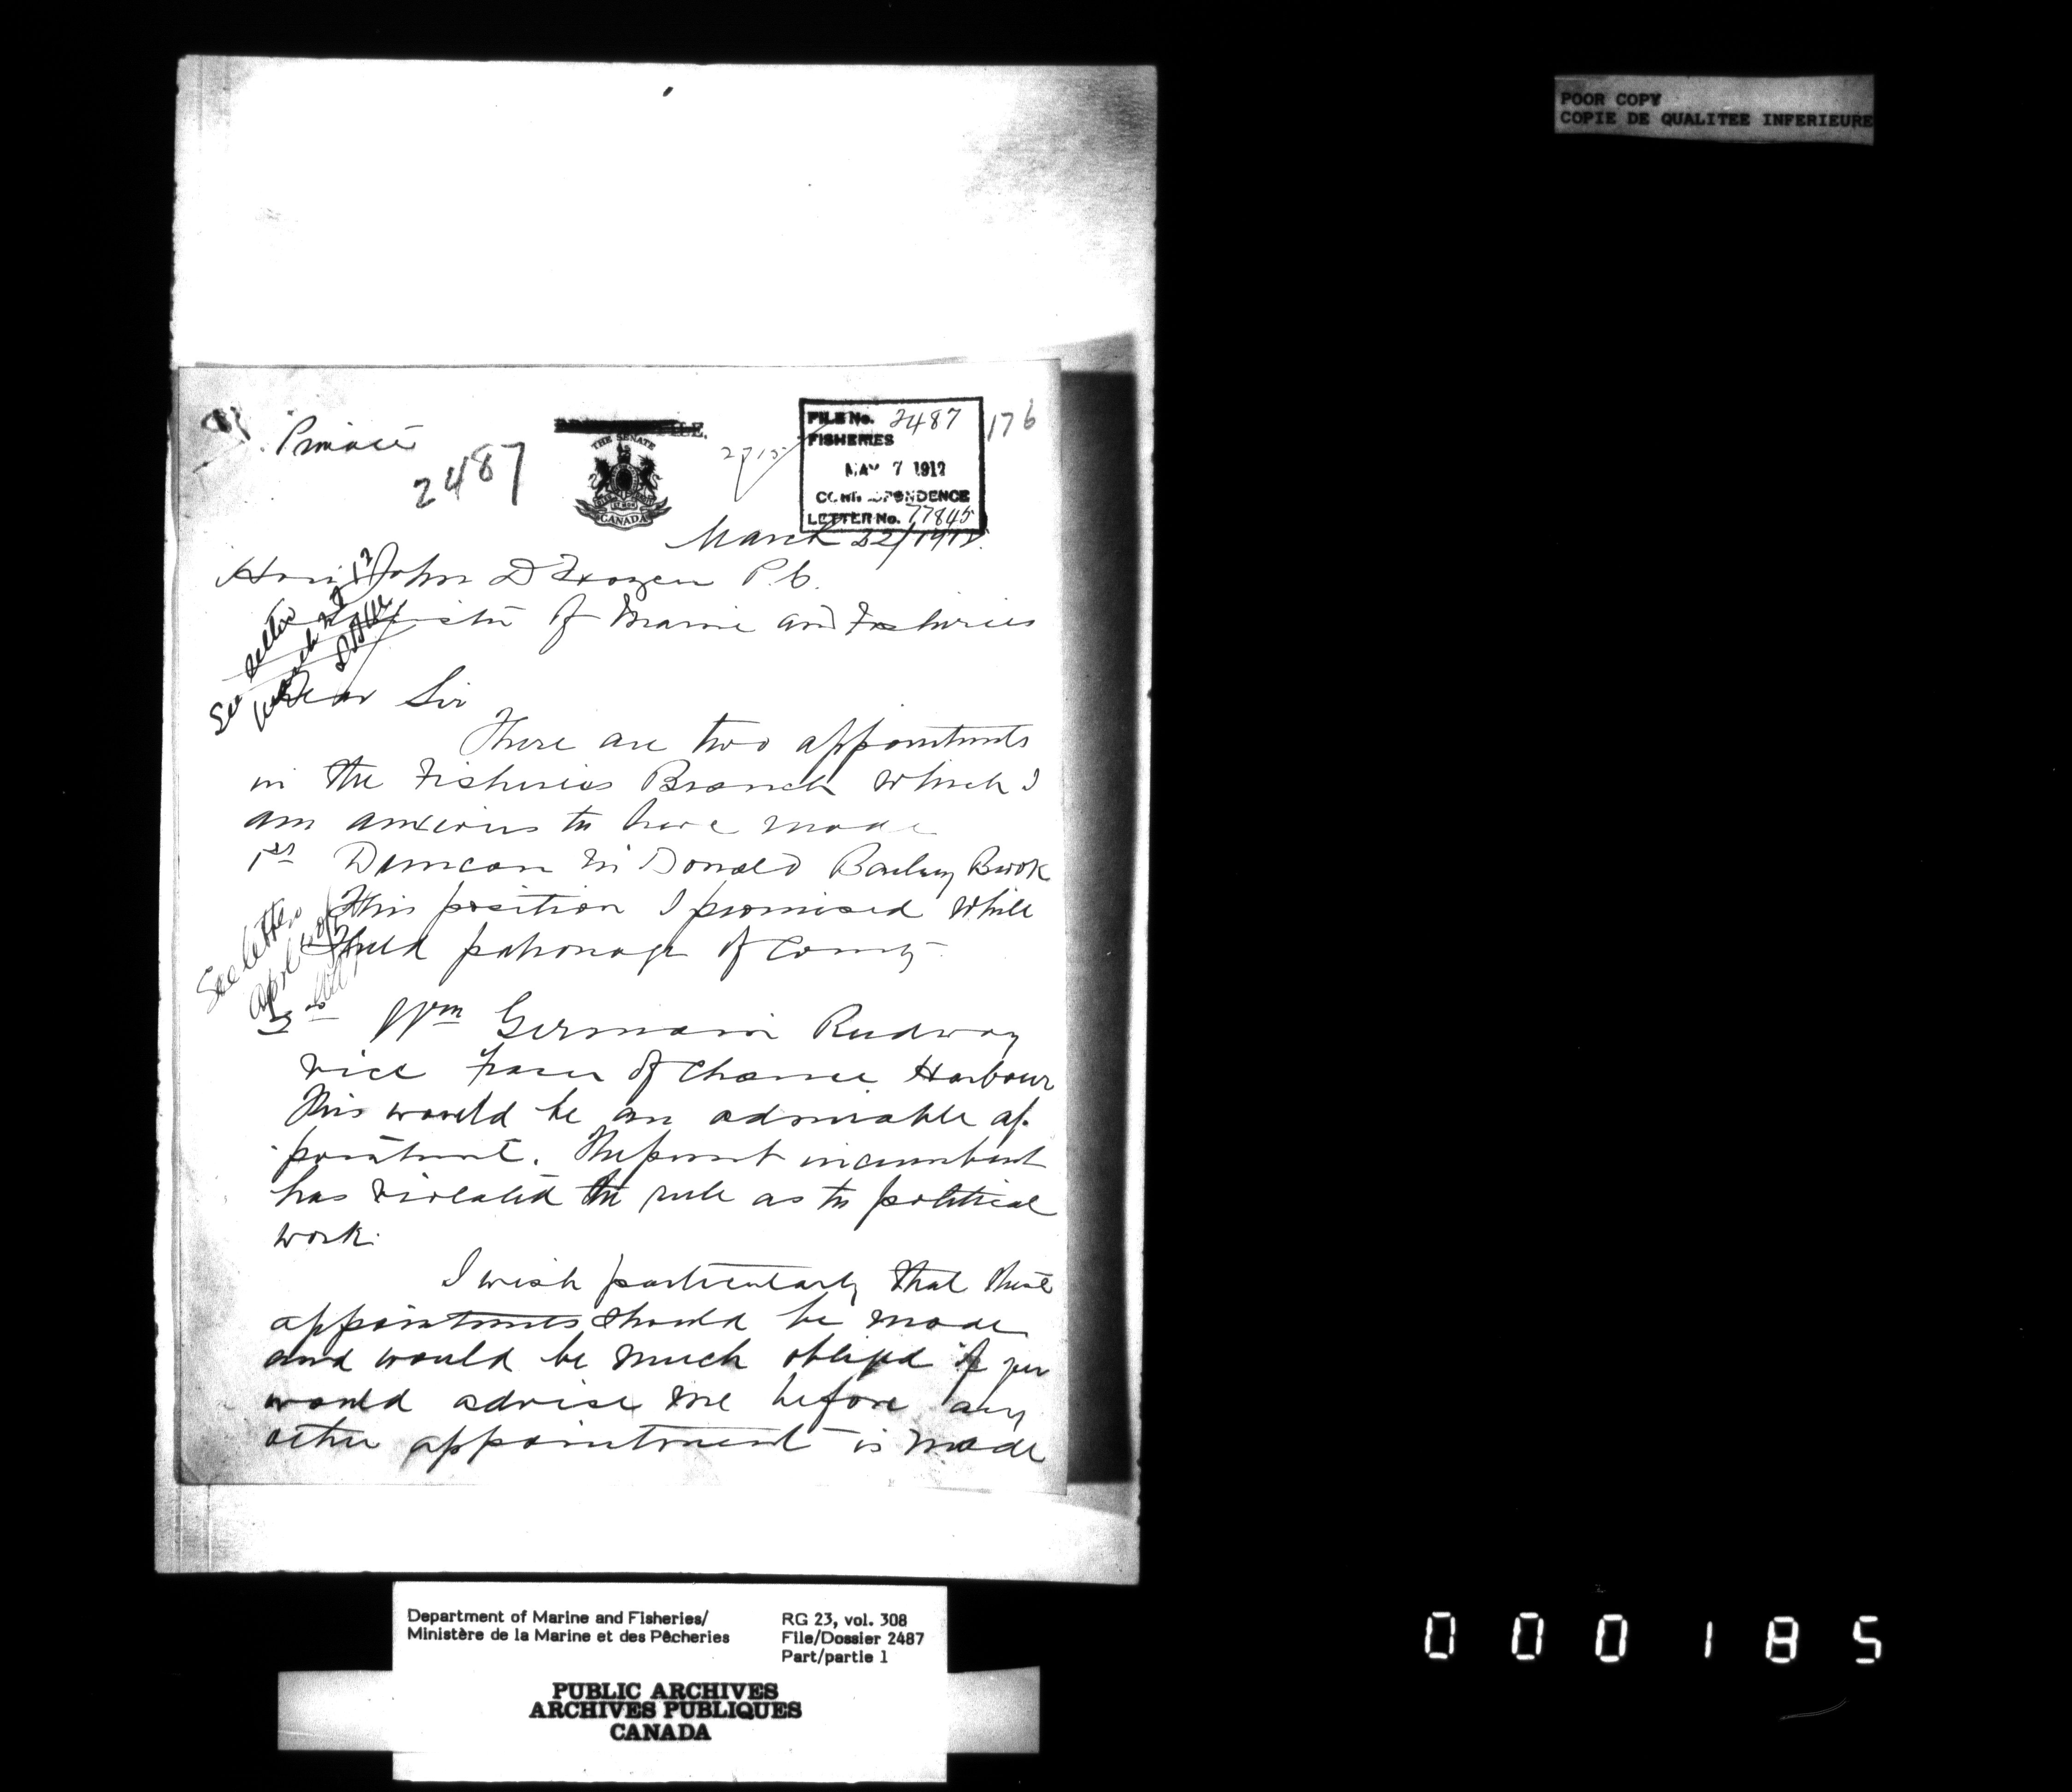 POOR COPY
COPIE DE QUALITEE INFERIEURE
Private
2487
THE SENATE
CANADA
2715
FILE No. 2487
FISHERIES
MAY 7 1912
CORRESPONDENCE
LETTER No. 77845
176
March 22/1912
Hon John D Hazen P.C.
Minister of Marine and Fisheries
See letter
March
Dear Sir
There are two appointments
in the Fisheries Branch which I
am anxious to have made
1st Duncan McDonald Barley Brook
This position I promised while
I held patronage of County
See letter
April
2nd Wm Germain Rudway
vice Fraser of Chance Harbour
This would be an admirable ap-
pointment. The present incumbent
has violated the rule as to political
work.
I wish particularly that these
appointments should be made
and would be much obliged if you
would advise me before any
other appointment is made
Department of Marine and Fisheries/
Ministère de la Marine et des Pêcheries
RG 23, vol. 308
File/Dossier 2487
Part/partie 1
PUBLIC ARCHIVES
ARCHIVES PUBLIQUES
CANADA
000185